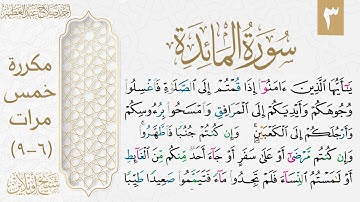 ٣
سورة المائدة
يَٰٓأَيُّهَا ٱلَّذِينَ ءَامَنُوٓا۟ إِذَا قُمْتُمْ إِلَى ٱلصَّلَوٰةِ فَٱغْسِلُوا۟
وُجُوهَكُمْ وَأَيْدِيَكُمْ إِلَى ٱلْمَرَافِقِ وَٱمْسَحُوا۟ بِرُءُوسِكُمْ
وَأَرْجُلَكُمْ إِلَى ٱلْكَعْبَيْنِ ۚ وَإِن كُنتُمْ جُنُبًا فَٱطَّهَّرُوا۟ ۚ
وَإِن كُنتُم مَّرْضَىٰٓ أَوْ عَلَىٰ سَفَرٍ أَوْ جَآءَ أَحَدٌ مِّنكُم مِّنَ ٱلْغَآئِطِ
أَوْ لَٰمَسْتُمُ ٱلنِّسَآءَ فَلَمْ تَجِدُوا۟ مَآءً فَتَيَمَّمُوا۟ صَعِيدًا طَيِّبًا
مكررة
خمس
مرات
(٦-٩)